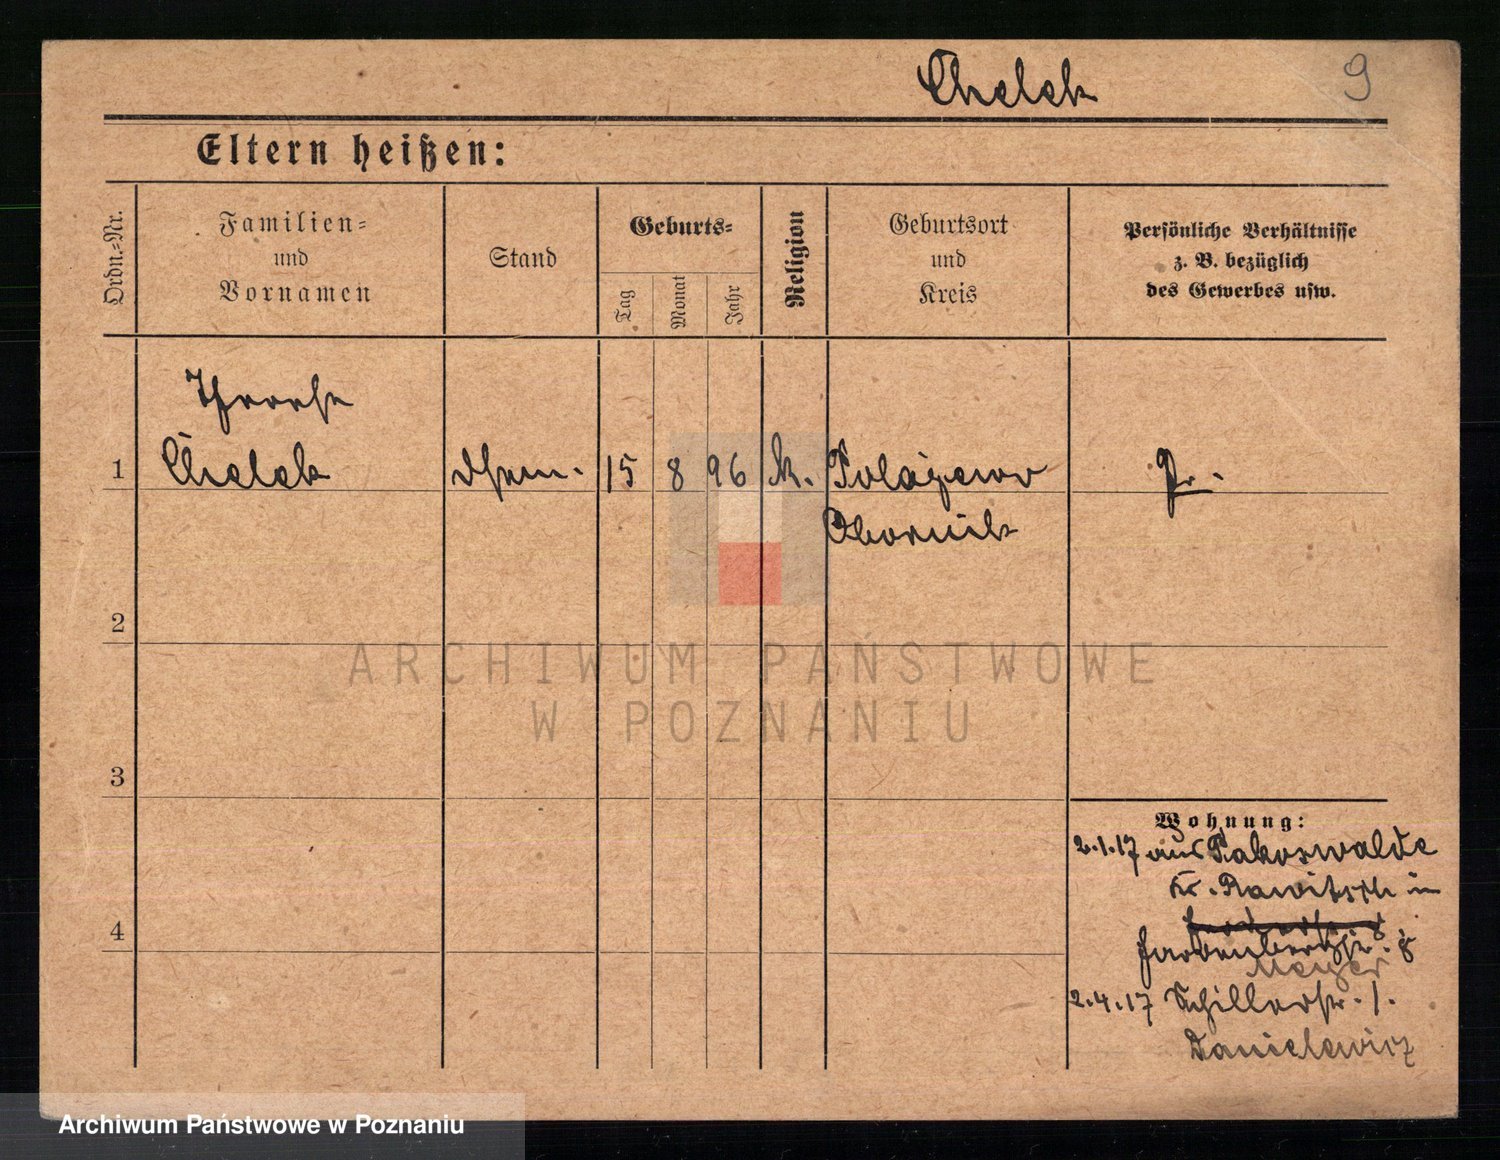 Chelek
9
Eltern heißen:
Ordn.-Nr.
Familien-
und
Vornamen
Stand
Geburts-
Tag
Monat
Jahr
Religion
Geburtsort
und
Kreis
Persönliche Verhältnisse
z. B. bezüglich
des Gewerbes usw.
1
Chelek
15
8
96
k.
Polajewo
Pr.
Obornik
2
ARCHIWUM PAŃSTWOWE
W POZNANIU
3
Wohnung:
2.1.17 aus Pakoswalde
Kr. Rawitsch in
4
8
Meyer
2.4.17 Schillerstr. 1.
Danielewicz
Archiwum Państwowe w Poznaniu